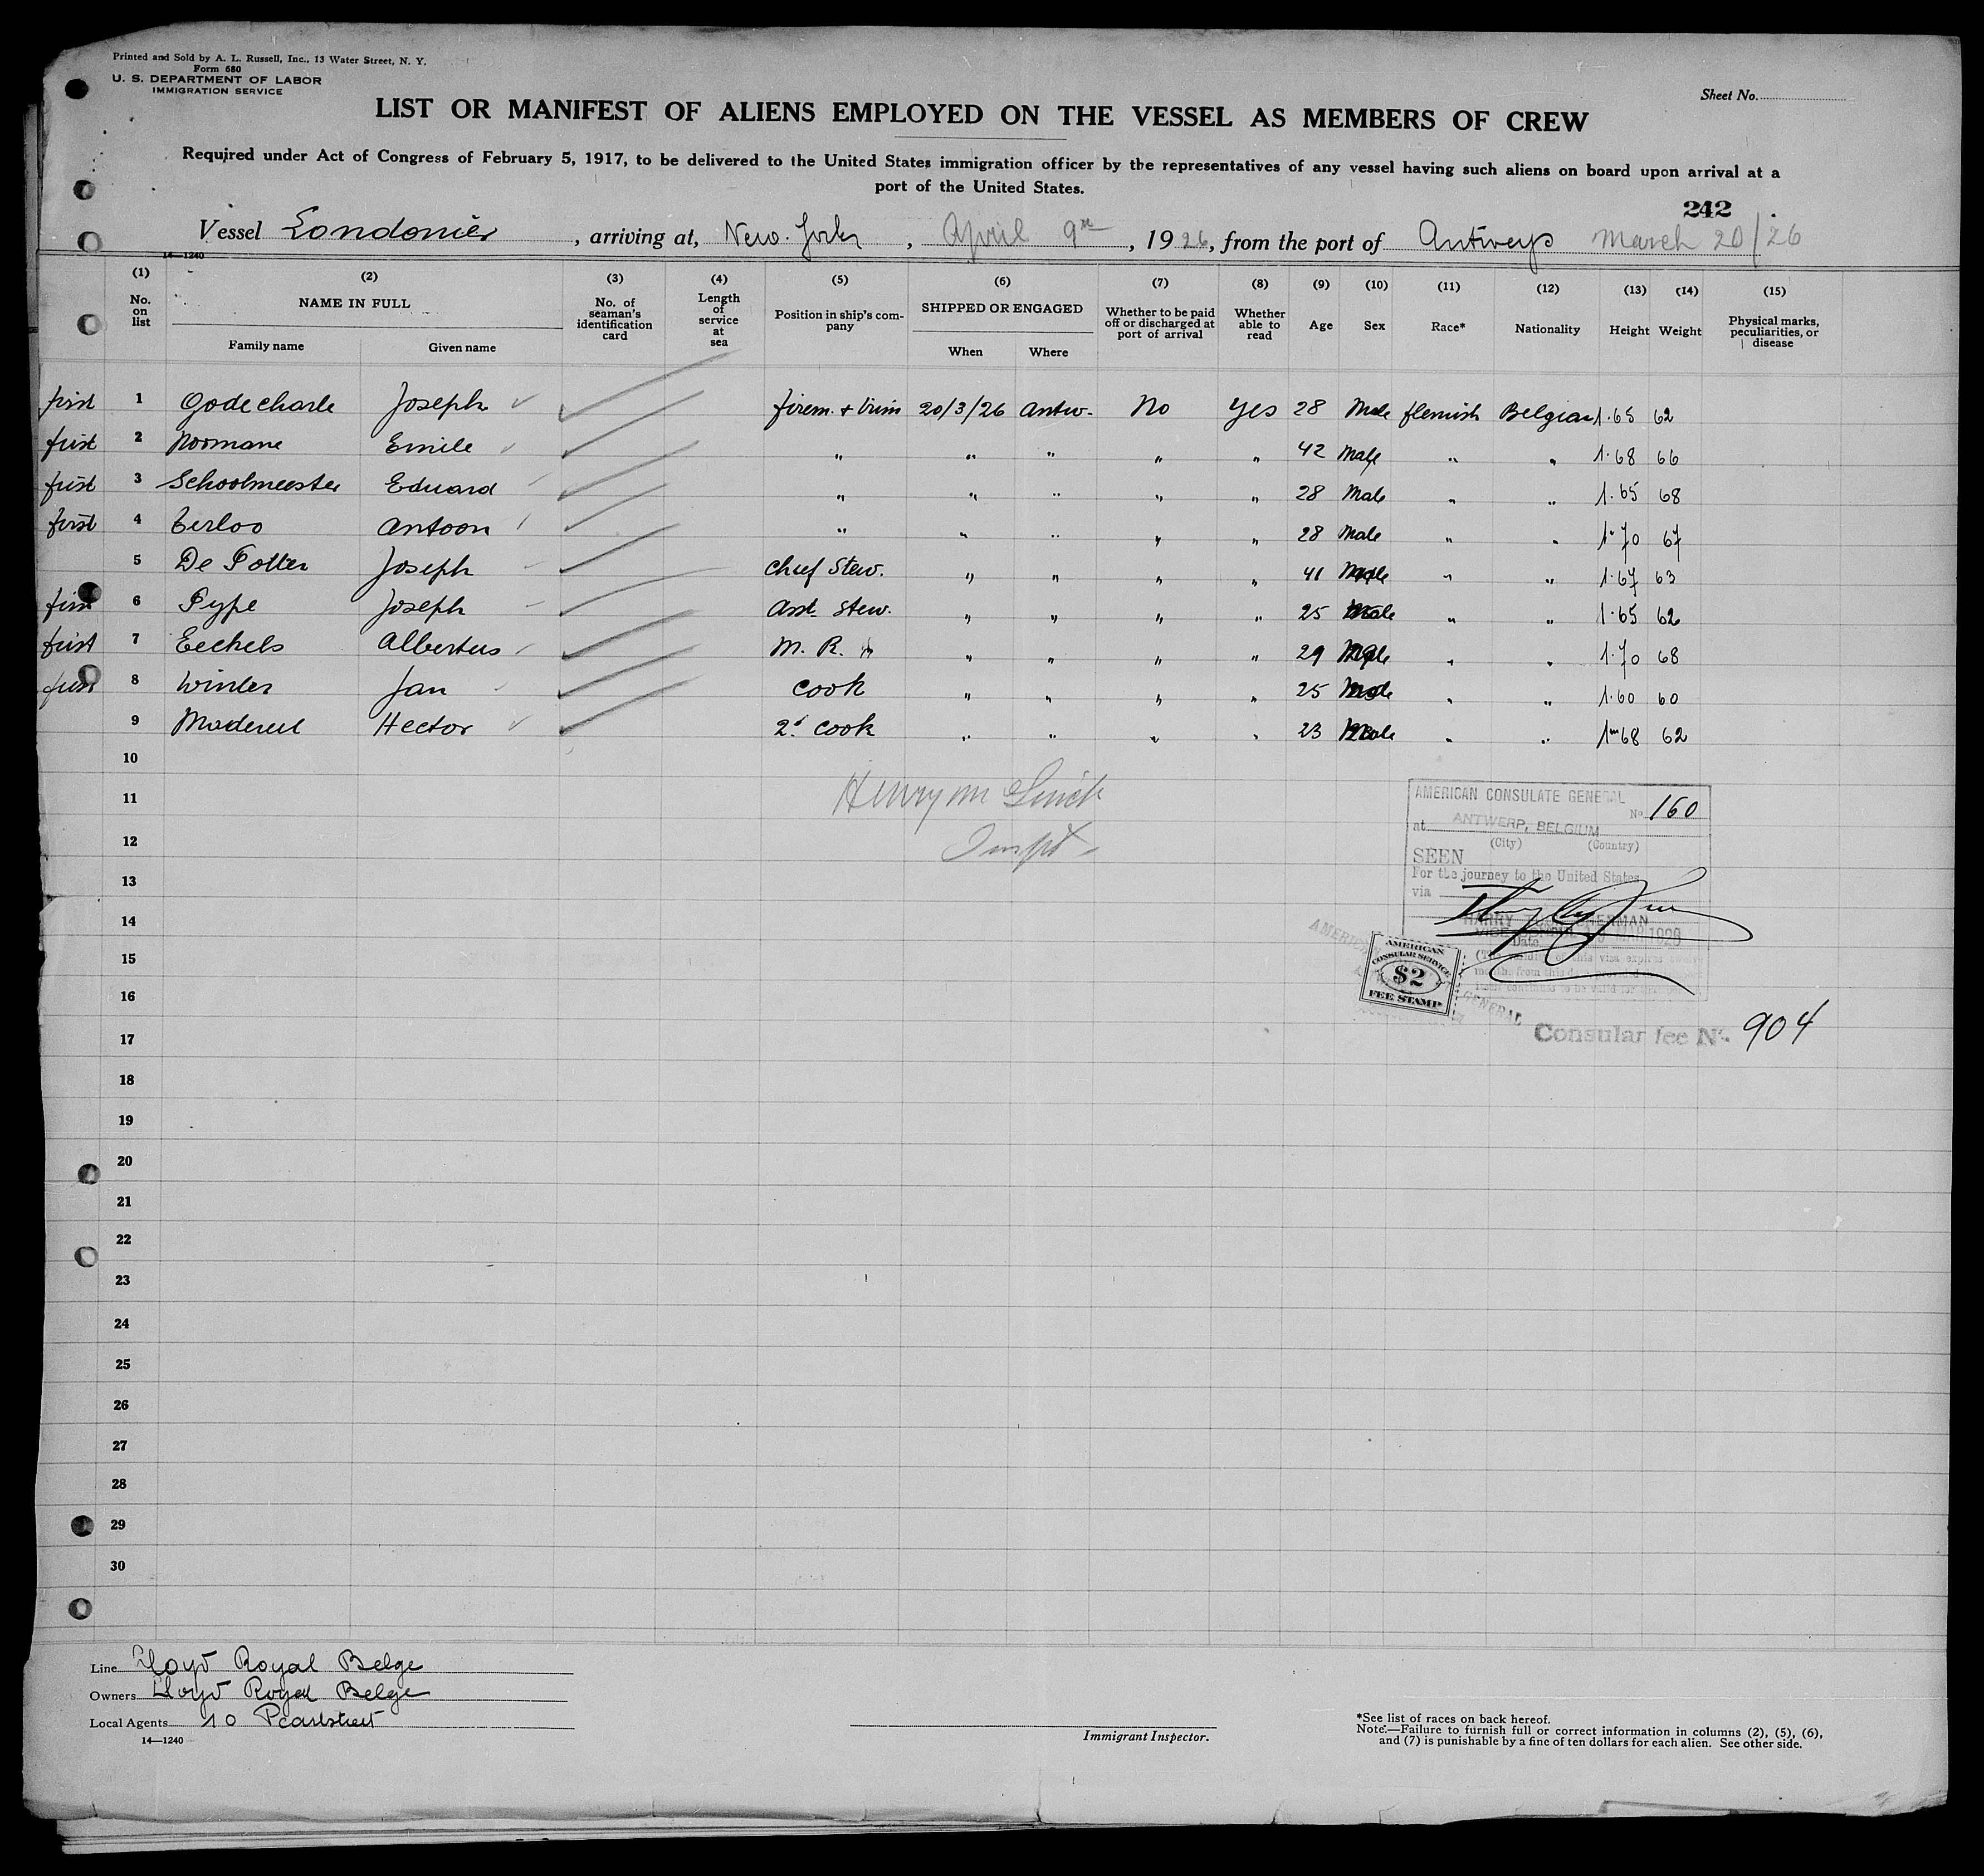 Printed and Sold by A. L. Russell, Inc., 13 Water Street, N. Y.
Form 680
U. S. DEPARTMENT OF LABOR
IMMIGRATION SERVICE
Sheet No.
LIST OR MANIFEST OF ALIENS EMPLOYED ON THE VESSEL AS MEMBERS OF CREW
Required under Act of Congress of February 5, 1917, to be delivered to the United States immigration officer by the representatives of any vessel having such aliens on board upon arrival at a
port of the United States.
242
Vessel Londonier, arriving at, New. York, April 9th, 1926, from the port of Antwerp March 20/26
14—1240
(1) (2) (3) (4) (5) (6) (7) (8) (9) (10) (11) (12) (13) (14) (15)
No. on list NAME IN FULL Family name Given name No. of seaman's identification card Length of service at sea Position in ship's company SHIPPED OR ENGAGED When Where Whether to be paid off or discharged at port of arrival Whether able to read Age Sex Race* Nationality Height Weight Physical marks, peculiarities, or disease
first 1 Godecharle Joseph firem. + trim 20/3/26 Antw. No Yes 28 Male flemish Belgian 1.65 62
first 2 Normane Emile " " " " " 42 Male " " 1.68 66
first 3 Schoolmeester Eduard " " " " " 28 Male " " 1.65 68
first 4 Terloo Antoon " " " " " 28 Male " " 1.70 67
5 De Potter Joseph chief Stew. " " " " 41 Male " " 1.67 63
first 6 Pype Joseph Asst. Stew. " " " " 25 Male " " 1.65 62
first 7 Eechels Albertus M. R. " " " " 29 Male " " 1.70 68
first 8 Winter Jan Cook " " " " 25 Male " " 1.60 60
9 Hector 2d Cook " " " " 23 Male " " 1m68 62
10
11 Henry M
12 Inspt
13
14
15
16
17
18
19
20
21
22
23
24
25
26
27
28
29
30
AMERICAN CONSULATE GENERAL
No. 160
at ANTWERP, BELGIUM
(City) (Country)
SEEN
For the journey to the United States
via
HARRY
VICE CONSUL
Date
AMERICAN
CONSULAR SERVICE
$2
FEE STAMP
GENERAL
Consular fee No. 904
Line Lloyd Royal Belge
Owners Lloyd Royal Belge
Local Agents 10 Pearlstreet
14—1240
Immigrant Inspector.
*See list of races on back hereof.
Note.—Failure to furnish full or correct information in columns (2), (5), (6),
and (7) is punishable by a fine of ten dollars for each alien. See other side.